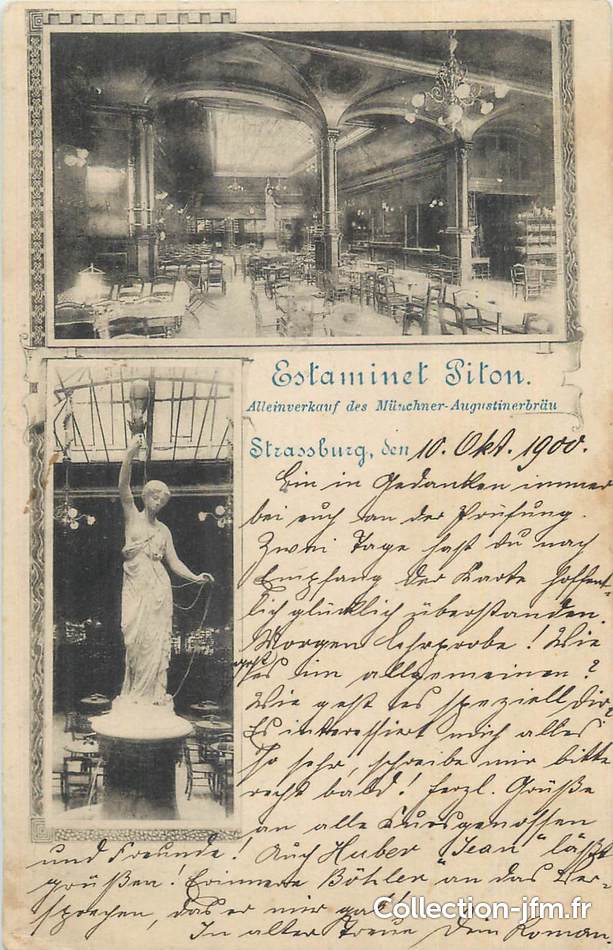 Estaminet Piton.
Alleinverkauf des Münchner-Augustinerbräu
Strassburg, den 10. Okt. 1900.
Bin in Gedanken immer
bei euch an der Prüfung.
Zwei Tage hast du nach
Empfang der Karte hoffent-
lich glücklich überstanden.
Morgen Lehrprobe! Wie
geht es im allgemeinen?
Wie geht es speziell dir?
Es interessiert mich alles
so sehr, schreibe mir bitte
recht bald! Herzl. Grüße
an alle Kursgenossen
und Freunde! Auch Huber "Jean" läßt
grüßen! Erinnere Böhler an das Ver-
sprechen, das er mir gab!
In alter Treue Dein Roman
Collection-jfm.fr